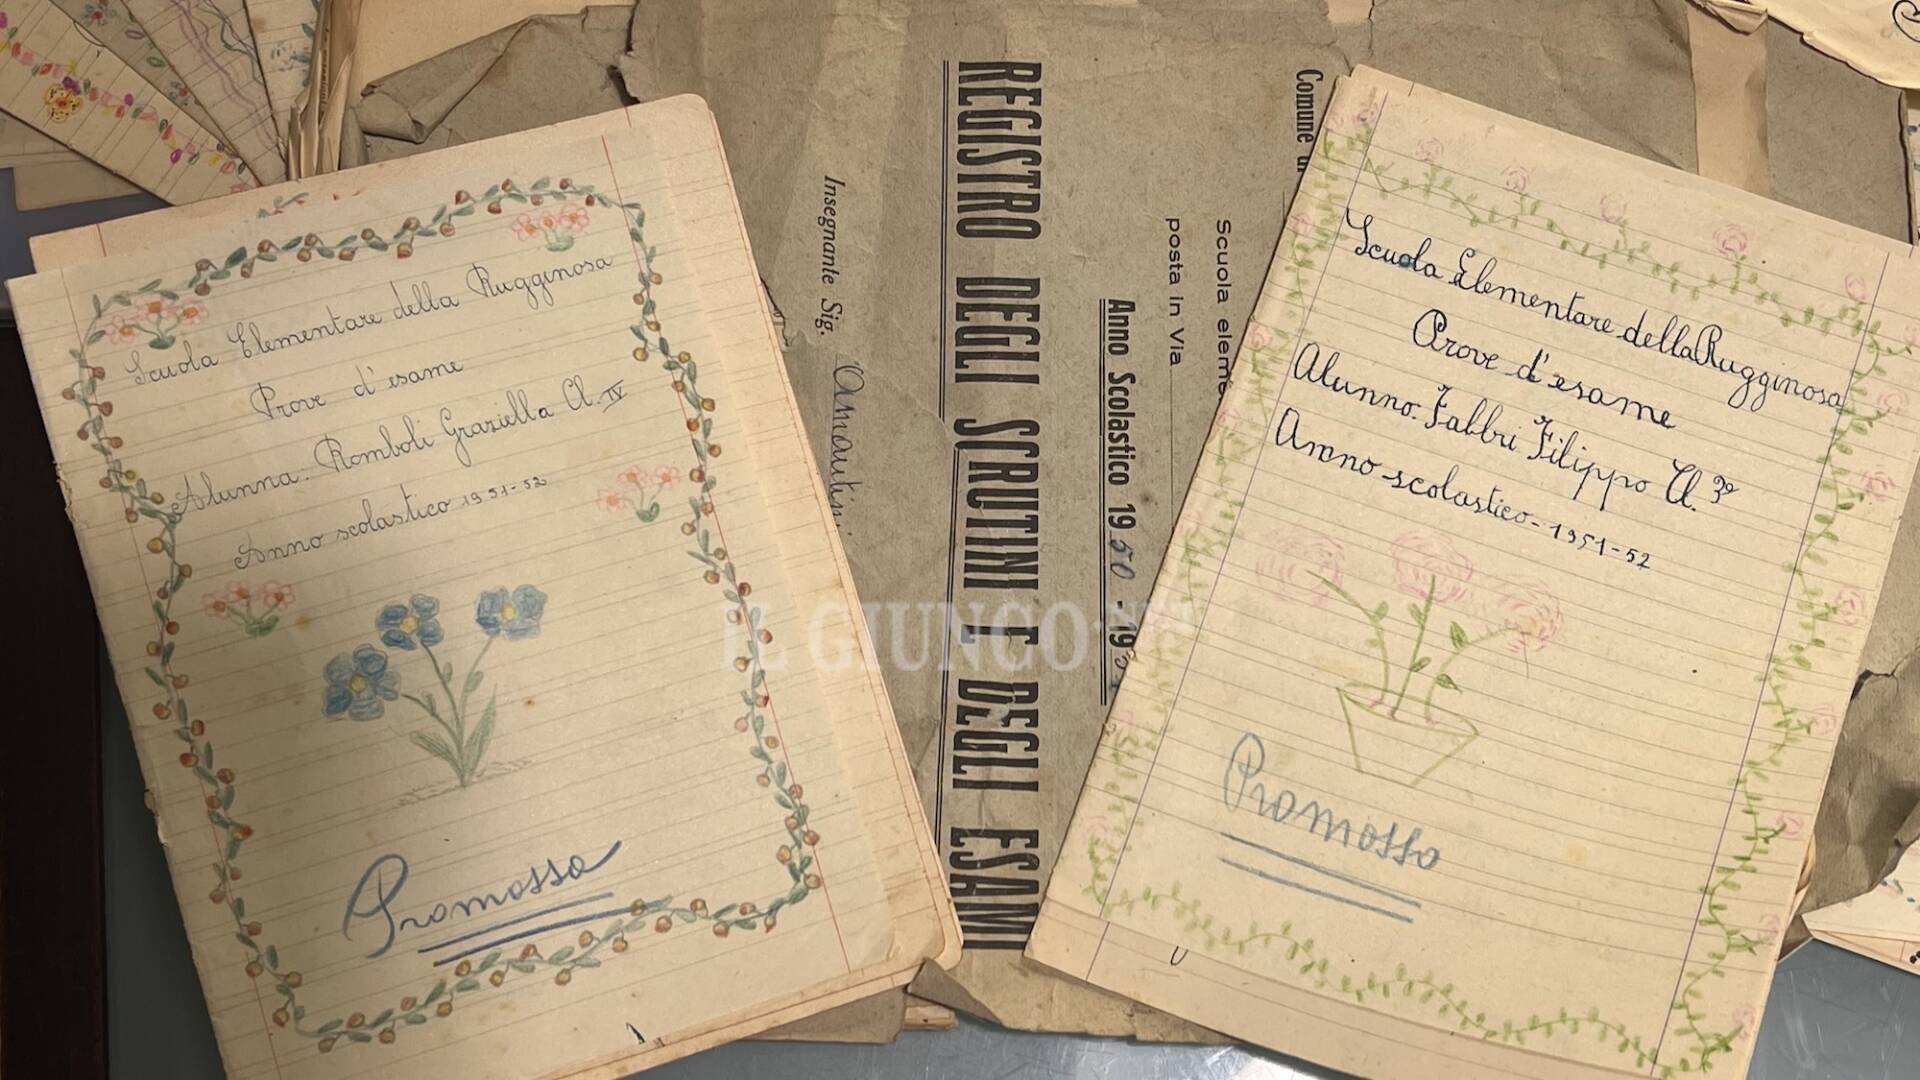 Scuola Elementare della Rugginosa
Prove d'esame
Alunna: Romboli Graziella Cl. IV
Anno scolastico 1951-52
Promossa
Comune di
Scuola eleme
posta in Via
Anno Scolastico 1950-195
REGISTRO DEGLI SCRUTINI E DEGLI ESAMI
Insegnante Sig.
IL GIUNCO
Scuola Elementare della Rugginosa
Prove d'esame
Alunno: Fabbri Filippo Cl. 3º
Anno scolastico-1951-52
Promosso